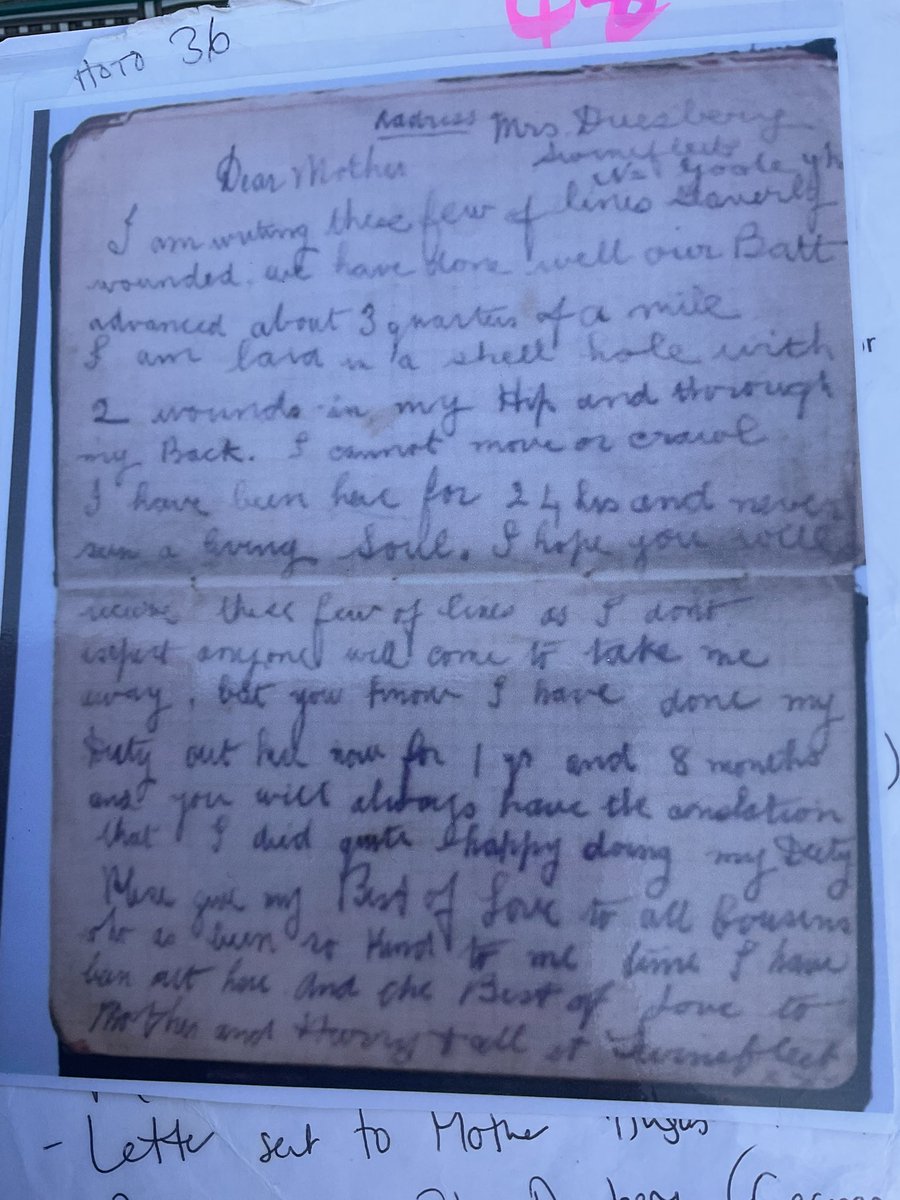 HOTO 36
48
Address Mrs Duesbery
Swinefleet
Dear Mother
Nr Goole Yk
I am writing these few of lines
wounded. we have done well our Batt
advanced about 3 quarters of a mile
I am laid in a shell hole with
2 wounds in my Hip and thorough
my Back. I cannot move or crawl
I have been here for 24 hrs and never
seen a living Soul. I hope you will
receive these few of lines as I dont
expect anyone will come to take me
away, but you know I have done my
Duty out here now for 1 yr and 8 months
and you will always have the
that I died quite happy doing my Duty
give my Best of Love to all Cousins
who as been so Kind to me time I have
been out here And the Best of Love to
Mother and Harry & all at Swinefleet
r
)
- Letter sent to Mother